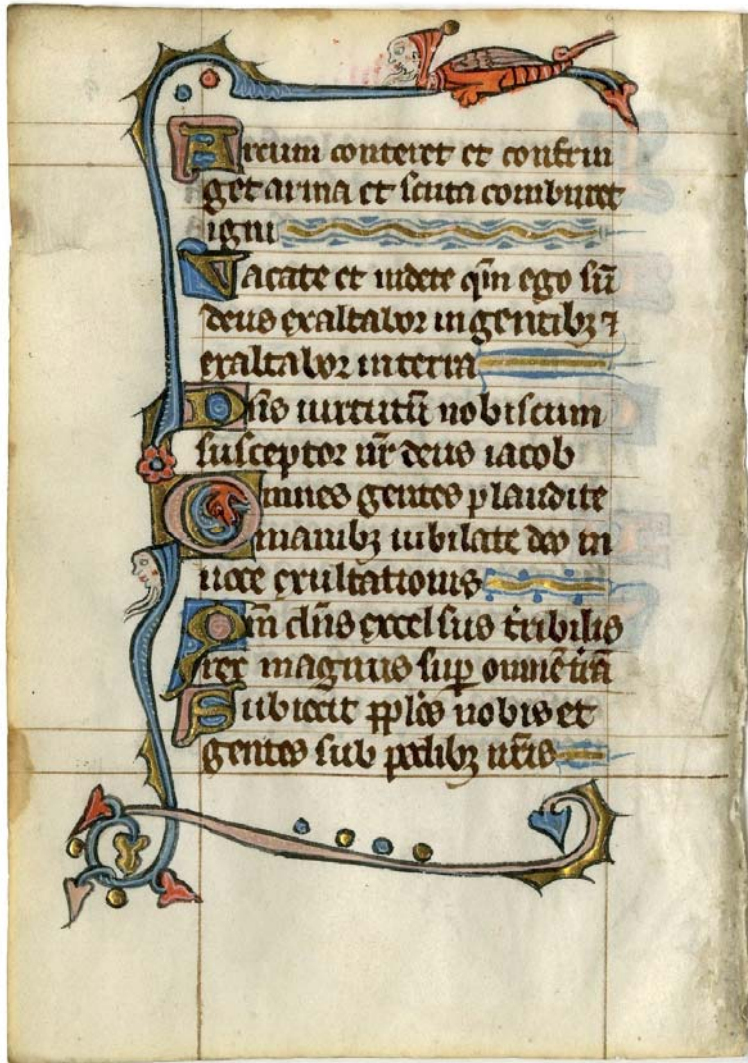 Arcum conteret et confrin
get arma et scuta comburet
igni
Vacate et uidete qm̄ ego sū
deus exaltabor in gentibꝫ ⁊
exaltabor in terra
Dn̄s uirtutū nobiscum
susceptor nr̄ deus iacob
Omnes gentes plaudite
manibꝫ iubilate deo in
uoce exultationis
Qm̄ dn̄s excelsus tribilis
rex magnus suꝑ omnē trā
Subiecit ppl̄os nobis et
gentes sub pedibꝫ nr̄is